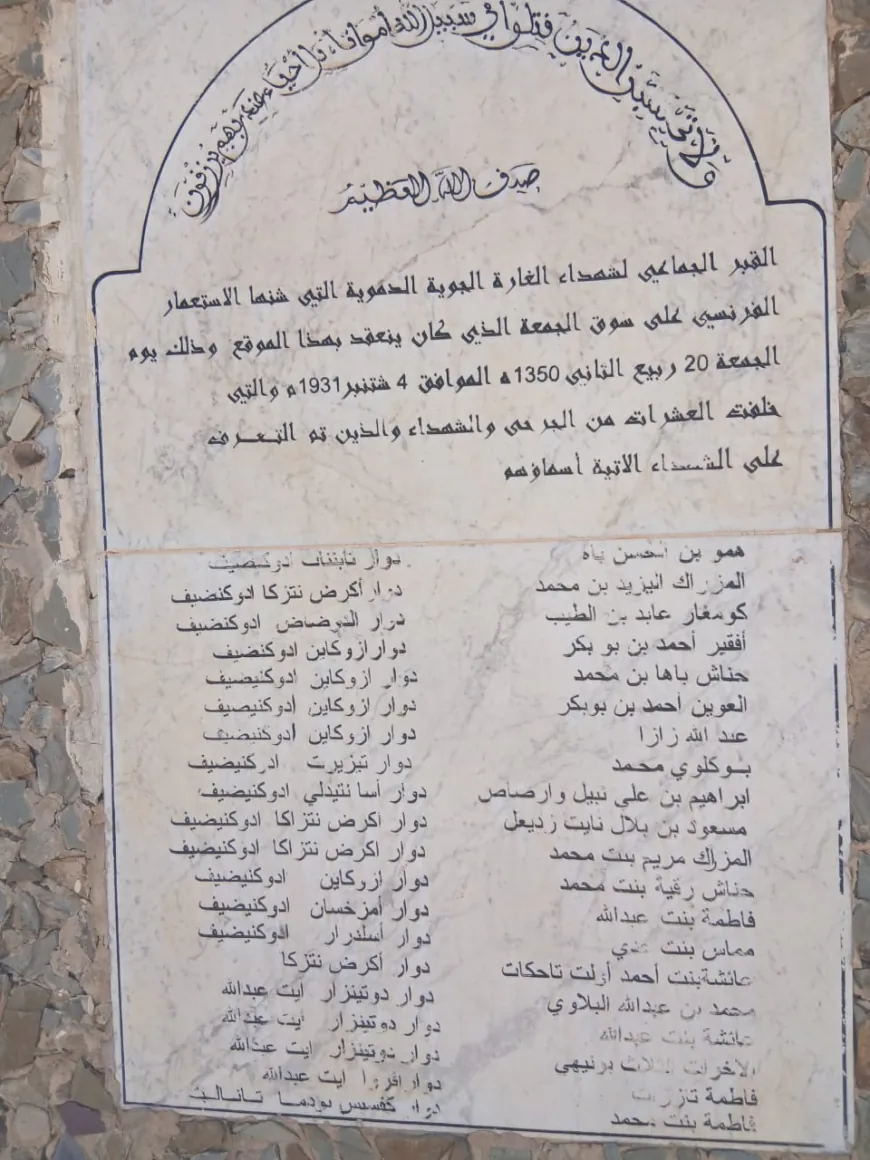 ولا تحسبن الذين قتلوا في سبيل الله أمواتا بل أحياء عند ربهم يرزقون
صدق الله العظيم
القبر الجماعي لشهداء الغارة الجوية الدموية التي شنها الاستعمار
الفرنسي على سوق الجمعة الذي كان ينعقد بهذا الموقع وذلك يوم
الجمعة 20 ربيع الثاني 1350ه الموافق 4 شتنبر1931م والتي
خلفت العشرات من الجرحى والشهداء والذين تم التعرف
على الشهداء الاتية أسماؤهم
همو بن الحسن ياه دوار تابننات ادوكنضيف
المزراك اليزيد بن محمد دوار أكرض نتزكا ادوكنضيف
كومغار عابد بن الطيب دوار الدوضاض ادوكنضيف
أفقير أحمد بن بو بكر دوار ازوكاين ادوكنضيف
حناش باها بن محمد دوار ازوكاين ادوكنيضيف
العوين أحمد بن بوبكر دوار ازوكاين ادوكنيصيف
عبد الله زازا دوار ازوكاين ادوكنيضيف
بوكلوي محمد دوار تيزيرت ادركنيضيف
ابراهيم بن علي نبيل وارصاص دوار أسا نتيدلي ادوكنيضيف
مسعود بن بلال نايت زديعل دوار اكرض نتزاكا ادوكنيضيف
المزراك مريم بنت محمد دوار اكرض نتزاكا ادوكنيضيف
حناش رقية بنت محمد دوار ازوكاين ادوكنيضيف
فاطمة بنت عبدالله دوار أمزخسان ادوكنيضيف
مماس بنت دوار أسلدرار ادوكنيضيف
عائشةبنت أحمد أزلت تاحكات دوار أكرض نتزكا
محمد بن عبدالله البلاوي دوار دوتينزار ايت عبدالله
عائشة بنت عبدالله دوار دوتينزار ايت عبدالله
الاخرات برنيهي دوار دوتينزار ايت عبدالله
فاطمة دوار ايت عبدالله
فاطمة بنت محمد دوار كفسس بودما تانالت